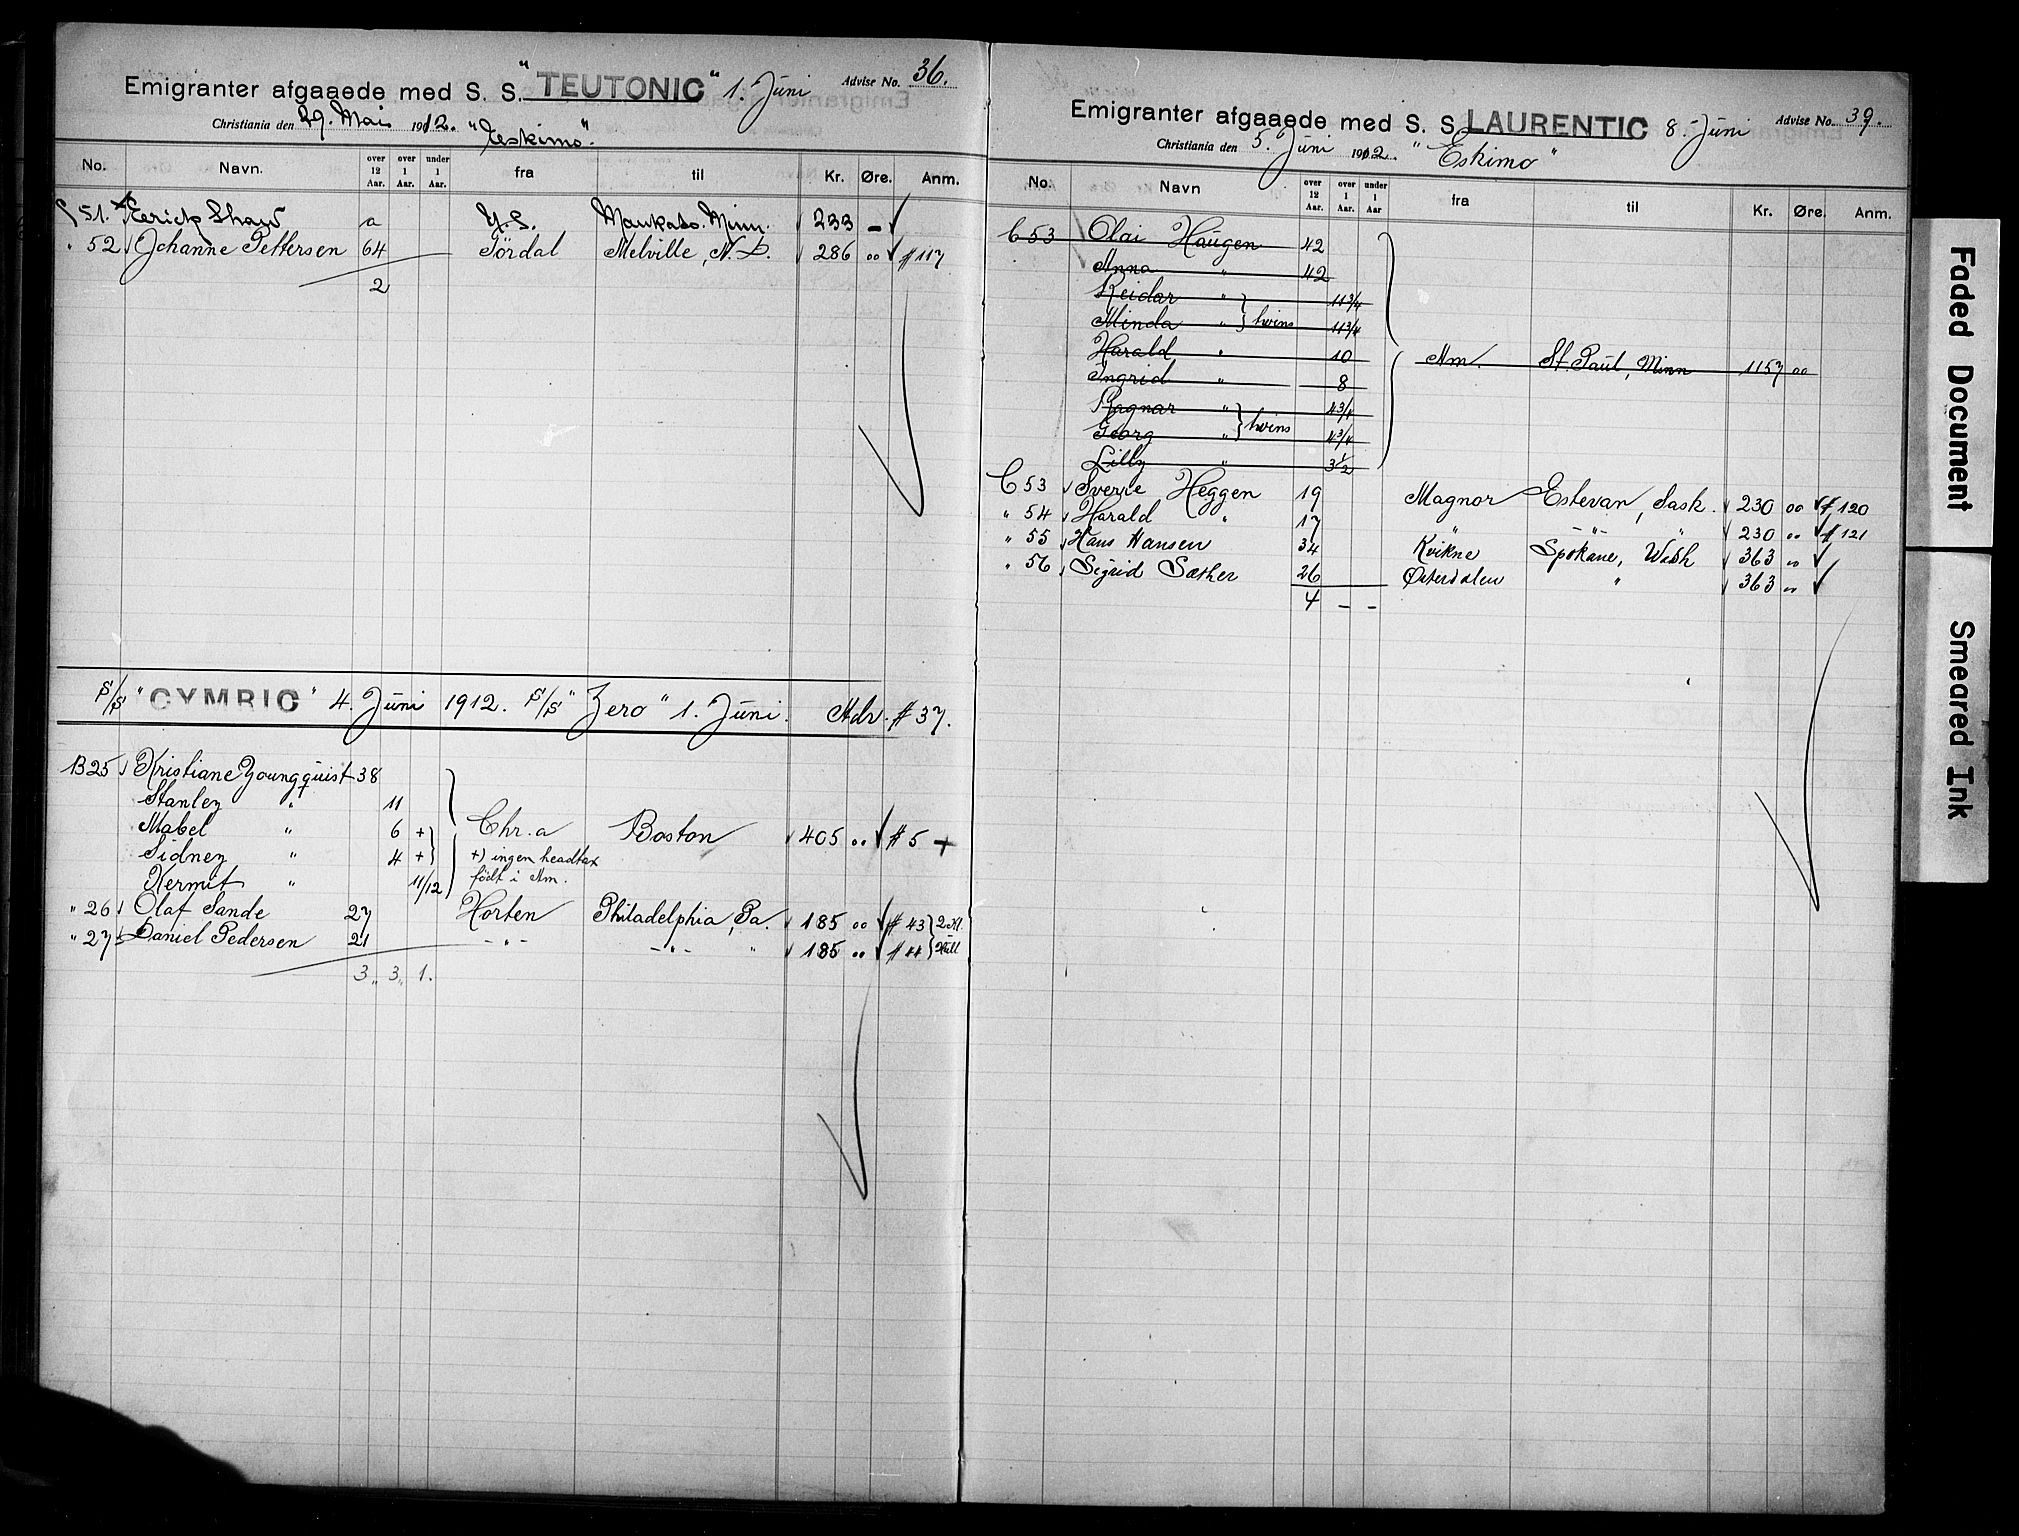 Emigranter afgaaede med S. S. "TEUTONIC" 1. Juni Advise No. 36.
Christiania den 29. Mai 1912. "Eskimo".
No. Navn. over 12 Aar. over 1 Aar. under 1 Aar. fra til Kr. Øre. Anm.
51. Shaw a Mankato. Minn. 233 –
" 52 Johanne Pettersen 64 Tördal Melville, N. D. 286 00 # 117
2
S/S "CYMRIC" 4. Juni 1912. S/S "Zero" 1. Juni. Adv. # 37.
B 25 Kristiane Youngquist 38
Stanley " 11
Mabel " 6 + Chr.a Boston 405 00 # 5 +
Sidney " 4 + +) ingen headtax
Kermit " 11/12 födt i Am.
" 26 Olaf Sande 27 Horten Philadelphia, Pa. 185 00 # 43 2 Kl.
" 27 Daniel Pedersen 21 - " - - " - " 185 00 # 44 Hull
3 " 3 " 1.
Emigranter afgaaede med S. S. LAURENTIC 8. Juni Advise No. 39.
Christiania den 5. Juni 1912. "Eskimo"
No. Navn over 12 Aar. over 1 Aar. under 1 Aar fra til Kr. Øre. Anm.
C 53 Olai Haugen 42
Anna " 42
Reidar " 11 3/4
Minda " twins 11 3/4
Harald " 10 Am. St. Paul, Minn 1157 00
Ingrid " 8
Ragnar " 4 3/4
Georg " twins 4 3/4
Lilly " 3 1/2
C 53 Sverre Heggen 19 Magnor Estevan, Sask. 230 00 # 120
" 54 Harald " 17 " - " - " 230 00 # 121
" 55 Hans Hansen 34 Kvikne Spokane, Wash 363 00
" 56 Sigrid Sæther 26 Österdalen " 363 00
4 – –
Faded Document
Smeared Ink